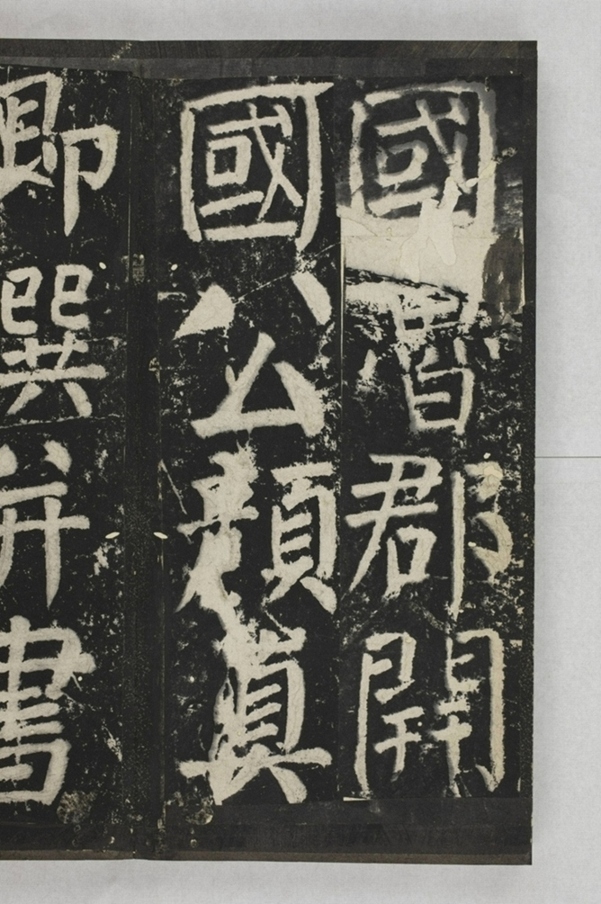 國魯郡開
國公顏真
卿撰并書